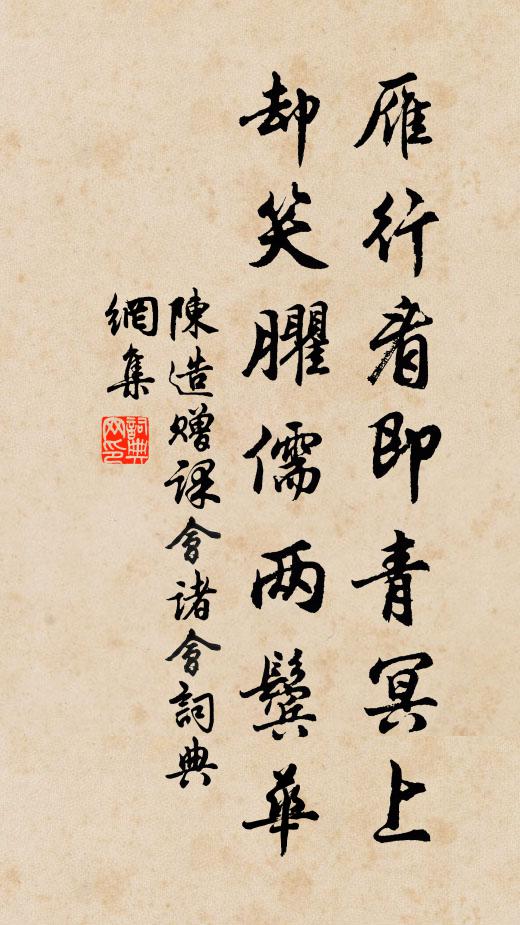 雁行看即青冥上
却笑臞儒两鬓華
陳造贈課會諸會詞典
網集
詞典
网印